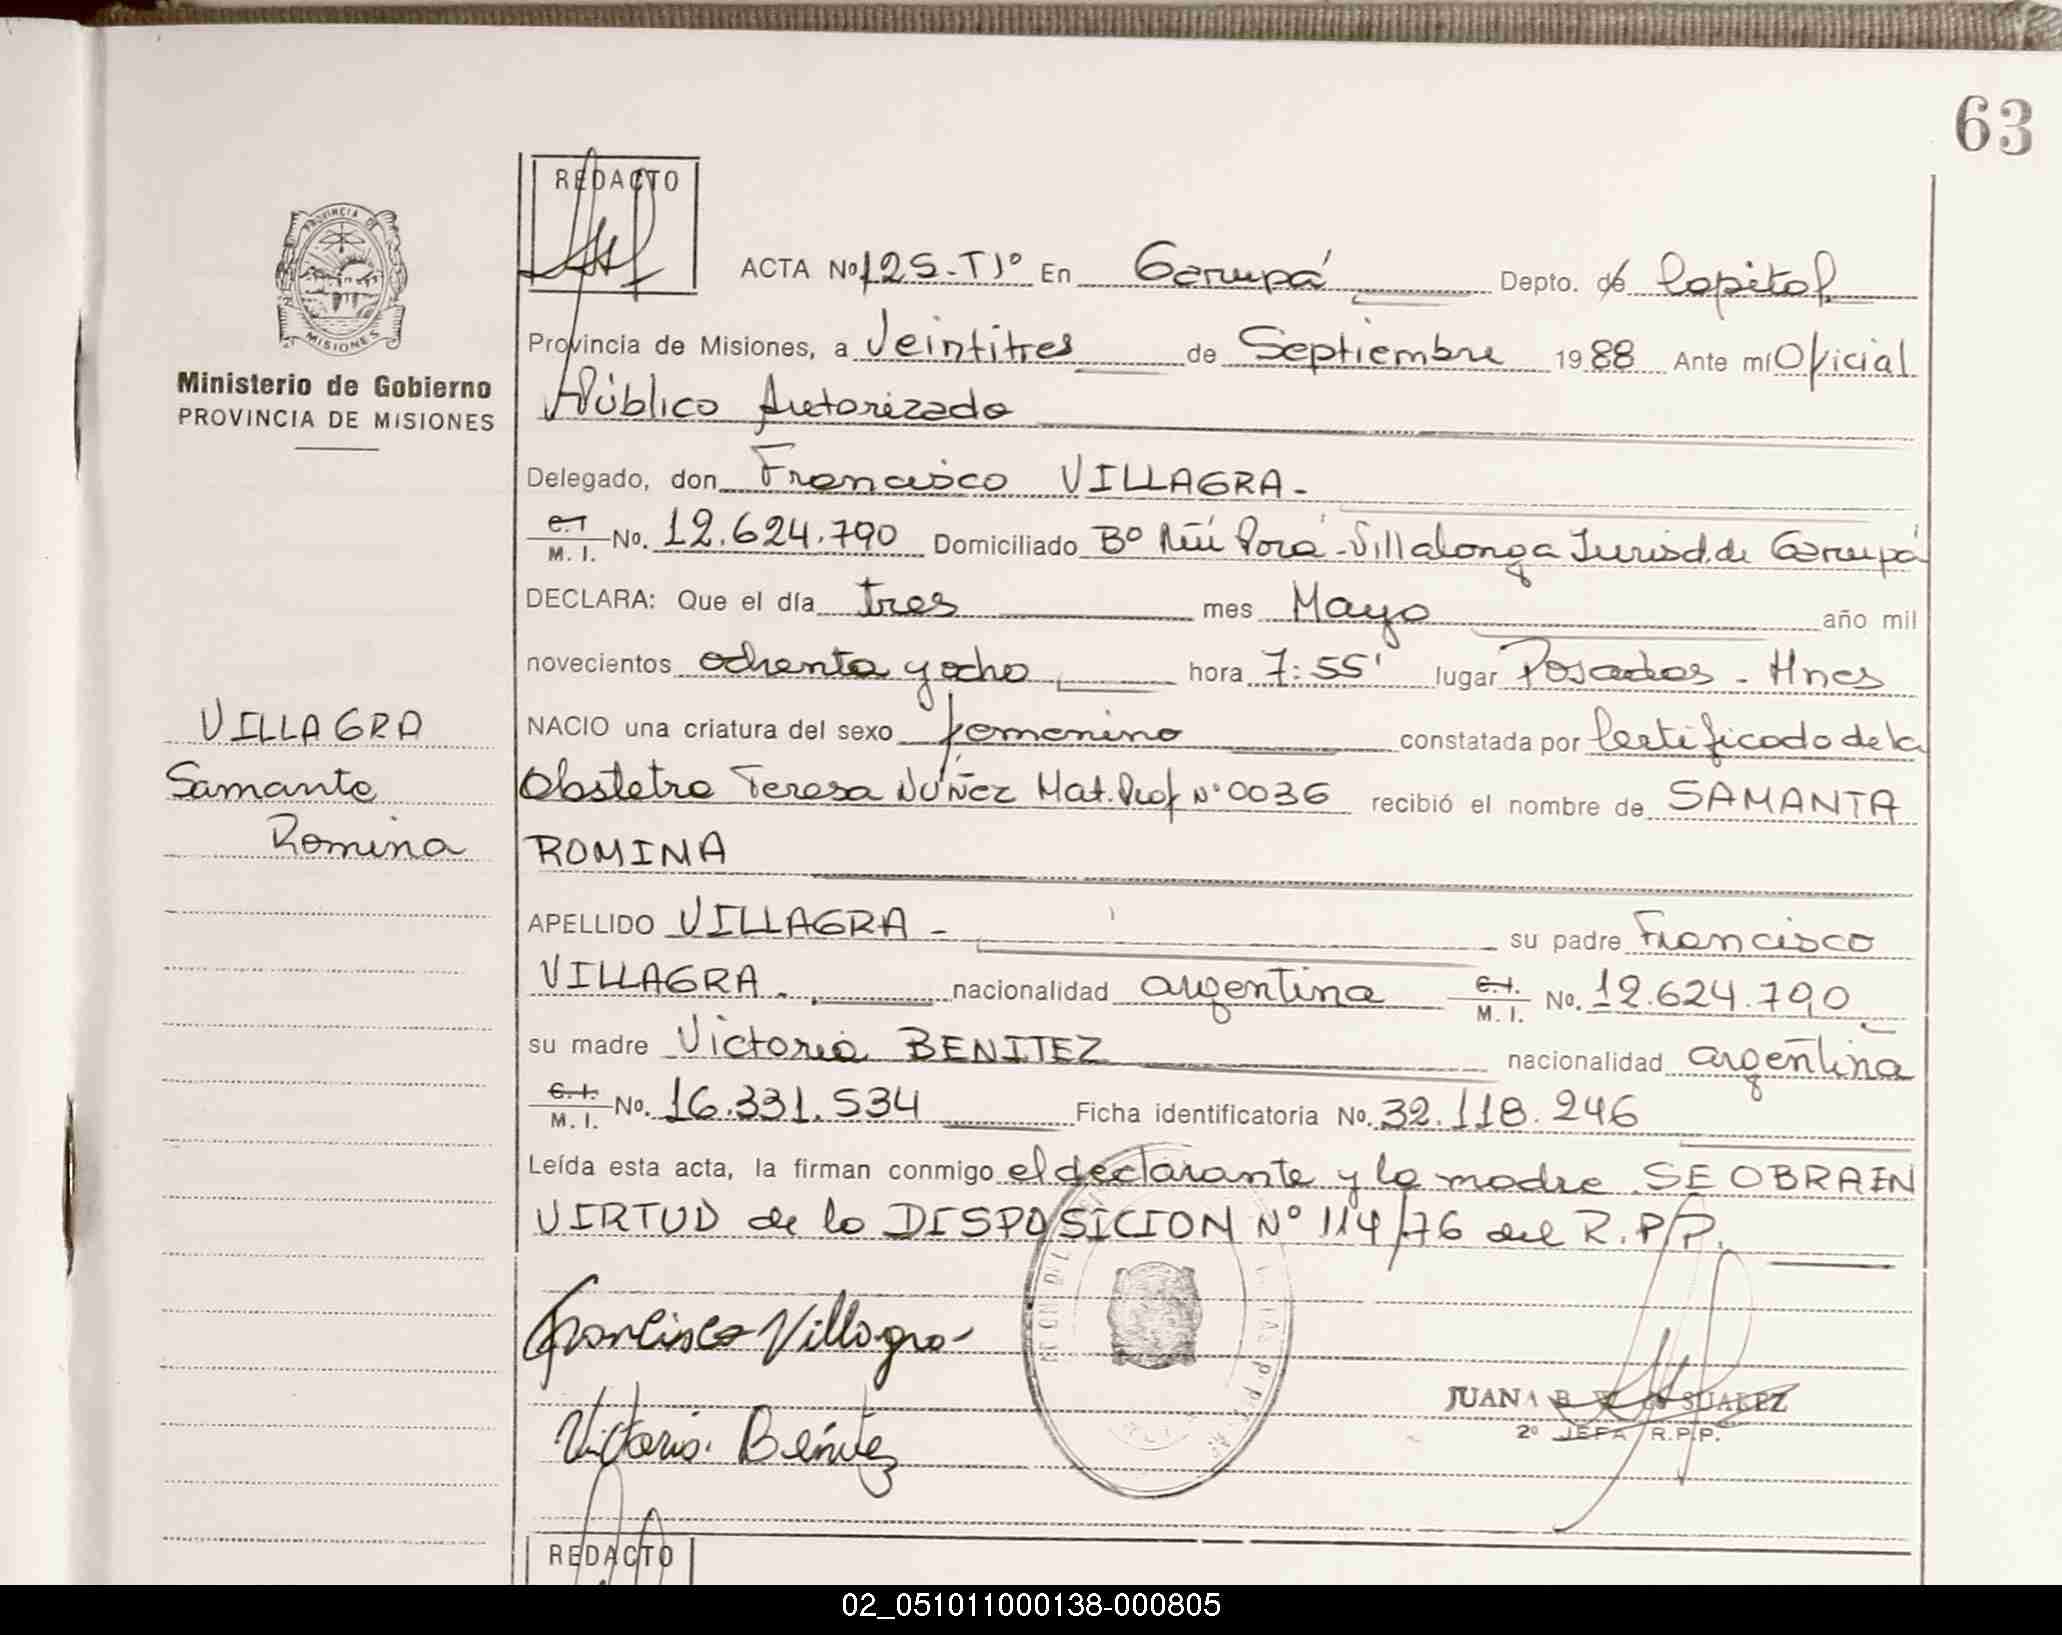 63
REDACTO
ACTA No 125-TIº En Garupá Depto. de Capital
Provincia de Misiones, a Veintitres de Septiembre 1988 Ante mí Oficial
Público Autorizado
Ministerio de Gobierno
PROVINCIA DE MISIONES
Delegado, don Francisco VILLAGRA-
C.I M. I. No. 12.624.790 Domiciliado Bº Ñu Porá-Villalonga Jurisd. de Garupá
DECLARA: Que el día tres mes Mayo año mil
novecientos ochenta y ocho hora 7:55' lugar Posadas - Mnes
VILLAGRA
Samanta
Romina
NACIO una criatura del sexo femenino constatada por Certificado de la
Obstetra Teresa NUÑEZ Mat. Prof Nº 0036 recibió el nombre de SAMANTA
ROMINA
APELLIDO VILLAGRA - su padre Francisco
VILLAGRA. nacionalidad argentina C.I. M. I. No. 12.624.790
su madre Victoria BENITEZ nacionalidad argentina
C.I. M. I. No. 16.331.534 Ficha identificatoria No. 32.118.246
Leída esta acta, la firman conmigo el declarante y la madre SE OBRA EN
VIRTUD de la DISPOSICION Nº 114/76 del R.P.P.
Francisco Villagra-
Victoria Benitez
JUANA B. SUAREZ
2º JEFA R.P.P.
REDACTO
02_051011000138-000805